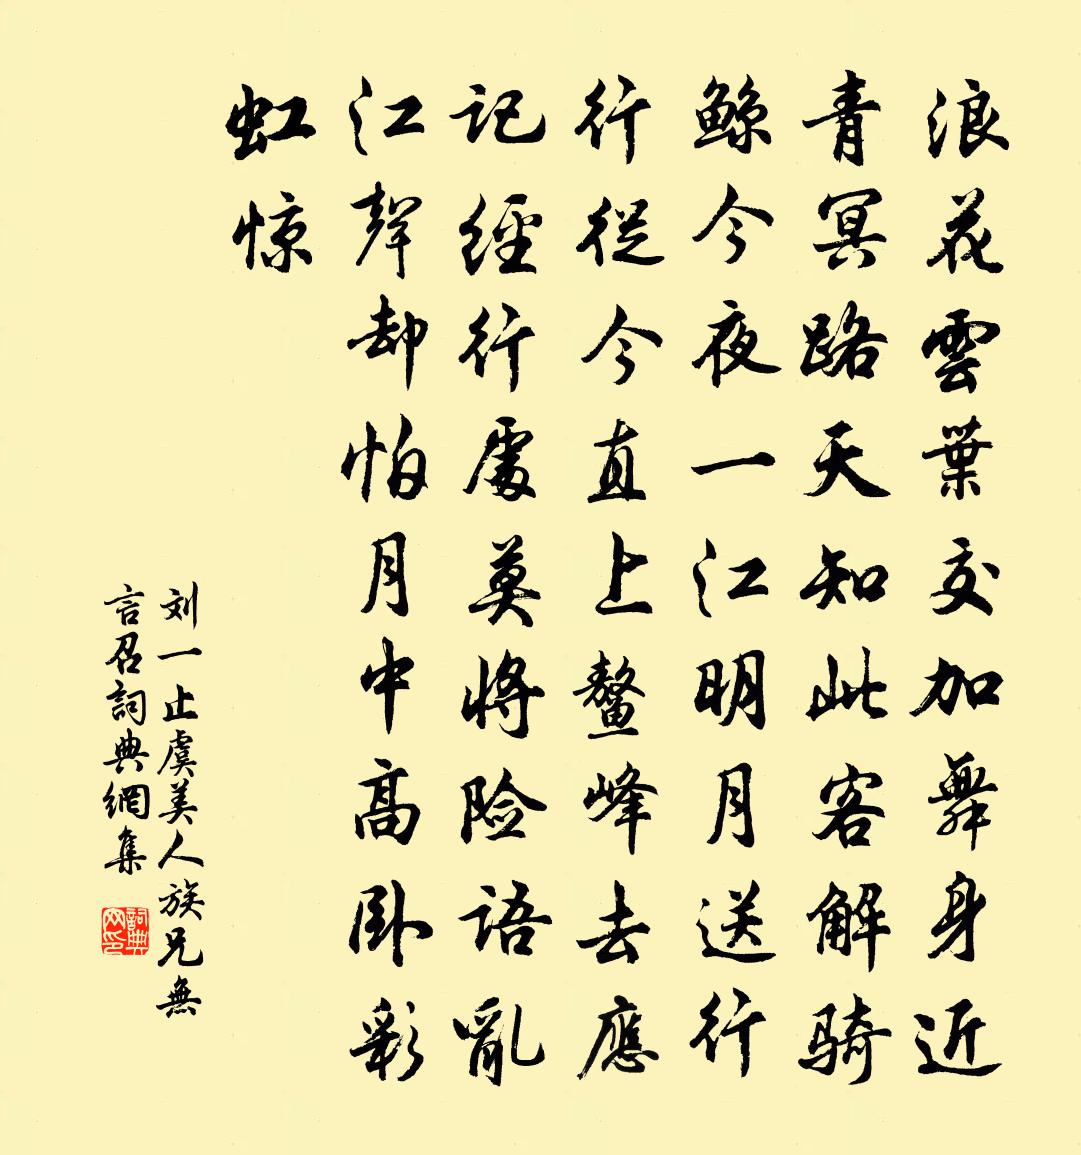 浪花雲葉交加舞身近
青冥路天知此客解骑
鲸今夜一江明月送行
行從今直上鳌峰去應
记經行處莫將险语亂
江聲却怕月中高卧彩
虹惊
刘一止虞美人族兄無
言召詞典網集
詞典网印